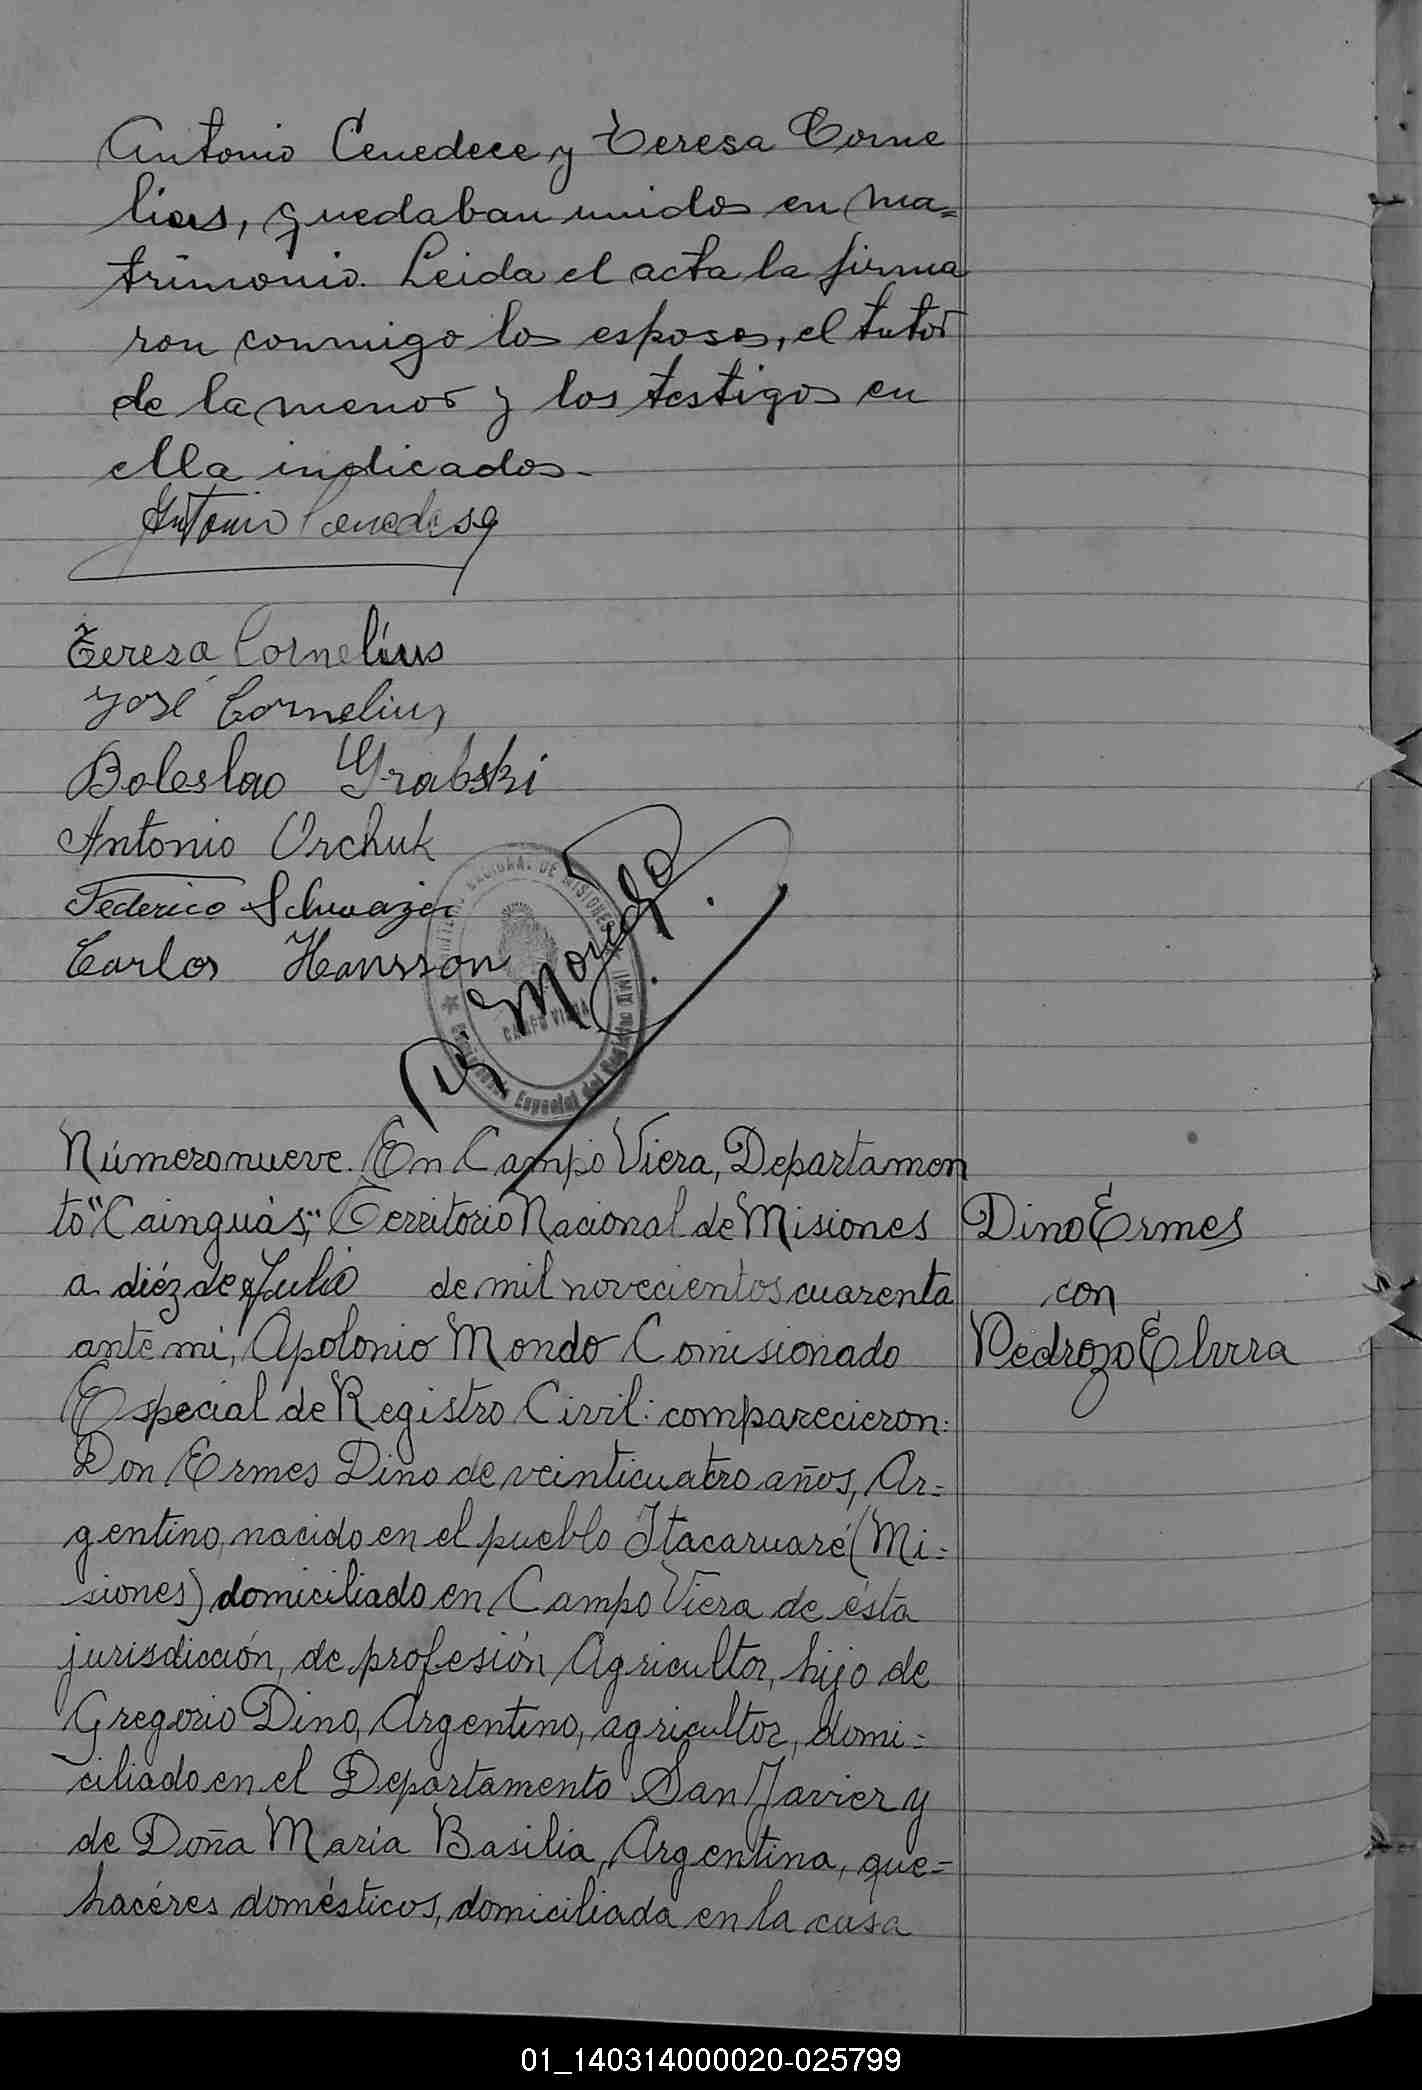 Antonio Cenedece y Teresa Corne
lius, quedaban unidos en ma=
trimonio. Leida el acta la firma
ron conmigo los esposos, el tutor
de la menor y los testigos en
ella indicados.
Antonio Cenedese
Teresa Cornelius
José Cornelius
Boleslao Grabski
Antonio Orchuk
Federico Schwazer
Carlos Hansson
NACIONAL DE MISIONES
CAMPO VIERA
Especial del Registro Civil
Mondo
Número nueve. En Campo Viera, Departamen
to "Cainguás," Territorio Nacional de Misiones
a diéz de Julio de mil novecientos cuarenta
ante mi, Apolonio Mondo Comisionado
Especial de Registro Civil: comparecieron:
Don Ermes Dino de veinticuatro años, Ar=
gentino, nacido en el pueblo Itacaruaré (Mi=
siones) domiciliado en Campo Viera de ésta
jurisdicción, de profesión Agricultor, hijo de
Gregorio Dino, Argentino, agricultor, domi=
ciliado en el Departamento San Javier y
de Doña Maria Basilia, Argentina, que=
hacéres domésticos, domiciliada en la casa
Dino Ermes
con
Pedrozo Elvira
01_140314000020-025799